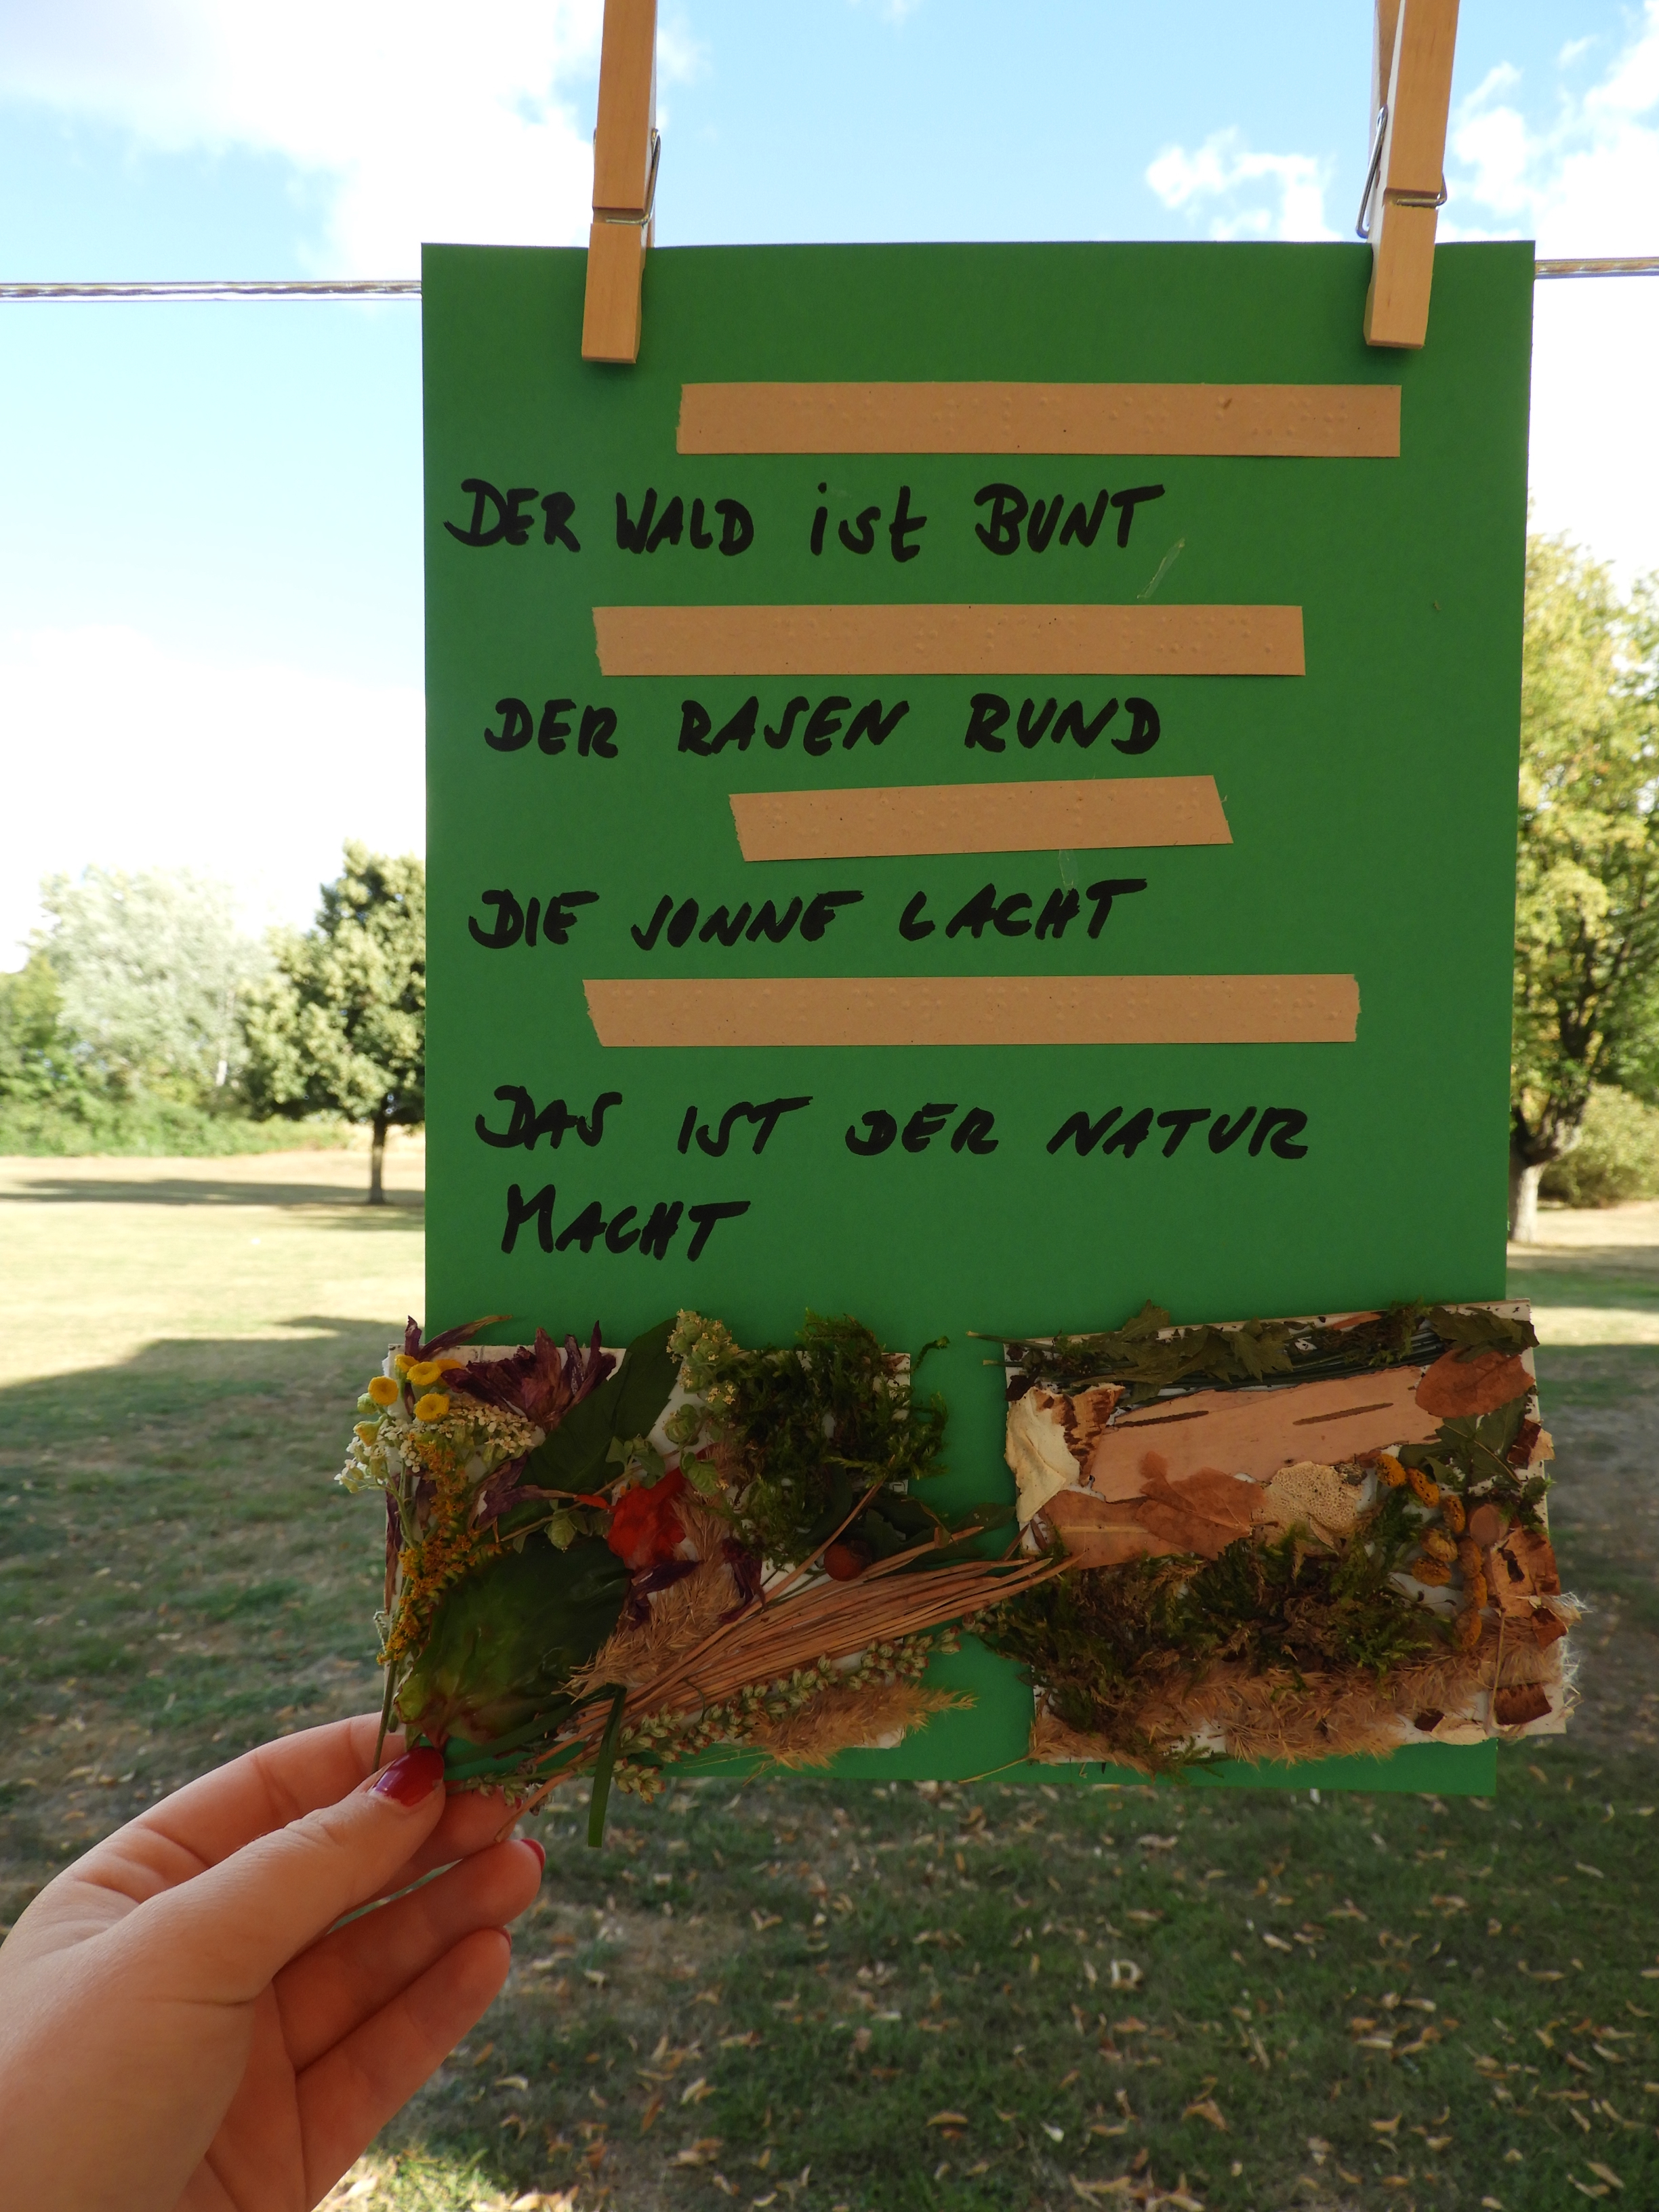 DER WALD ist BUNT
DER RASEN RUND
DIE SONNE LACHT
DAS IST DER NATUR
MACHT